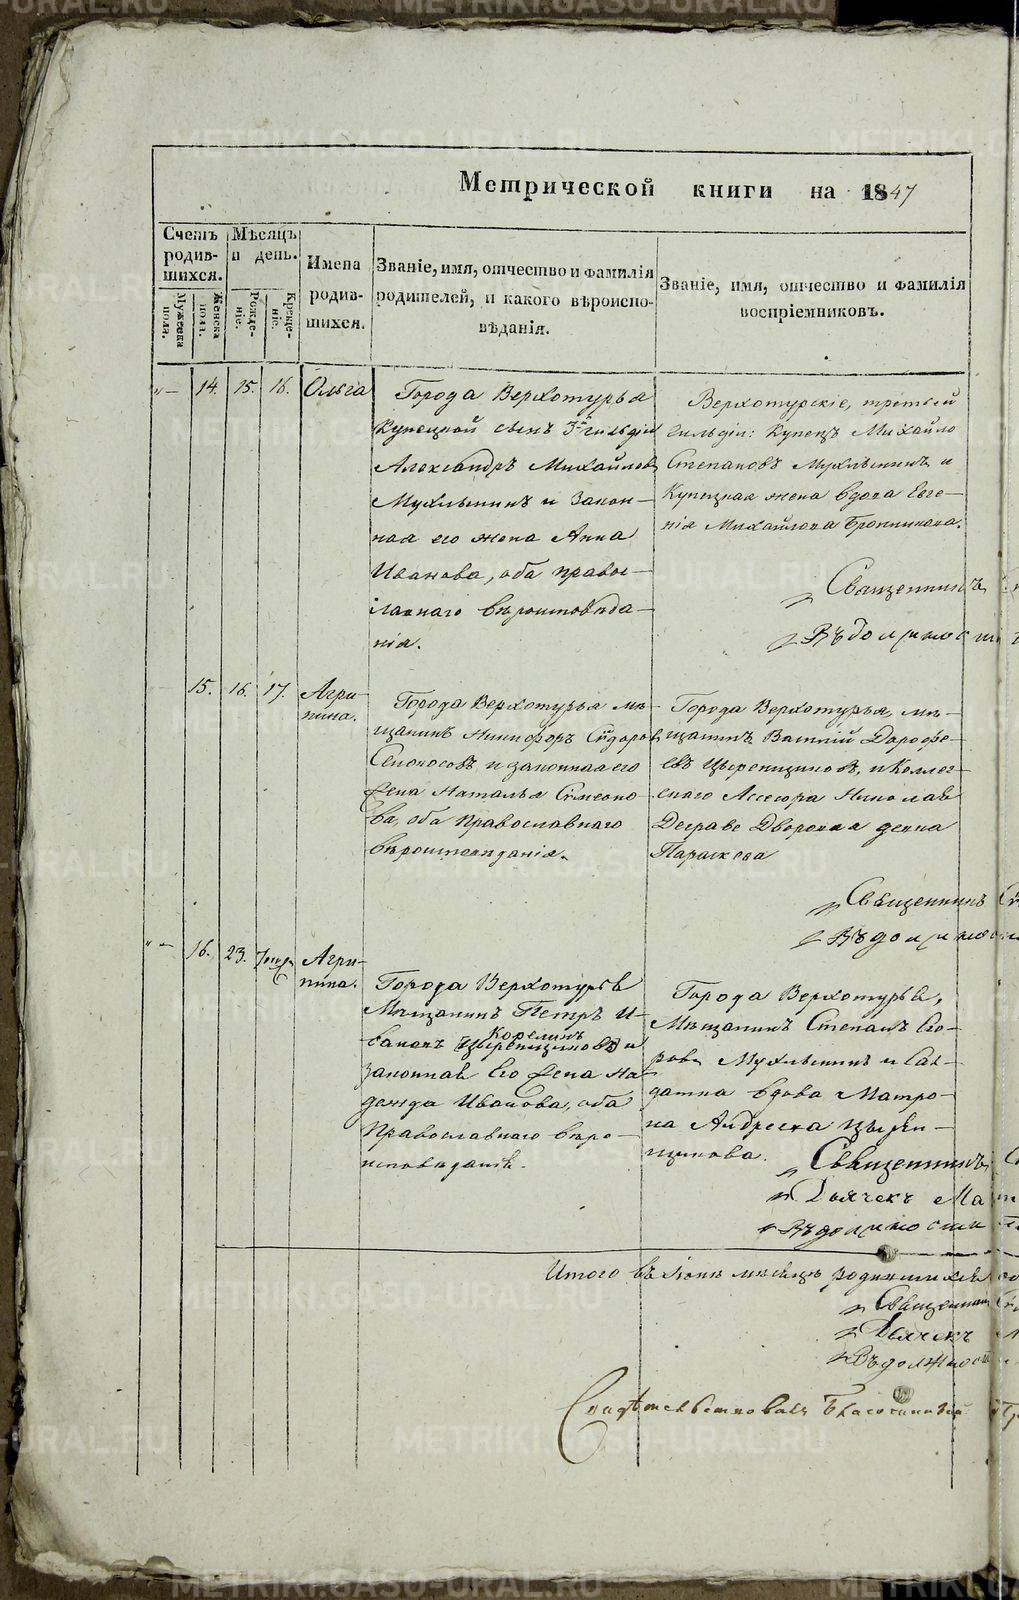 Метрической книги на 1847
Счетъ родившихся.
Мужеска пола.
Женска пола.
Мѣсяцъ и день.
Рожденіе.
Крещеніе.
Имена родившихся.
Званіе, имя, отчество и фамилія
родителей, и какого вѣроиспо-
вѣданія.
Званіе, имя, отчество и фамилія
воспріемниковъ.
14. 15. 16. Ольга
Города Верхотурья
Купецкой сынъ 3й гильдіи
Александръ Михайловъ
Мухлынинъ и закон-
ная его жена Анна
Иванова, оба право-
славнаго вѣроисповѣда-
нія.
Верхотурскіе, третьей
гильдіи: Купецъ Михайло
Степановъ Мухлынинъ и
Купецкая жена вдова Евге-
нія Михайлова
Священникъ
Въ должности
15. 16. 17. Агри-
пина.
Города Верхотурья мѣ-
щанинъ Никифоръ Сидоровъ
Сенокосовъ и законная его
жена Наталья Симеоно-
ва, оба православнаго
вѣроисповѣданія.
Города Верхотурья, мѣ-
щанинъ Василій Дорофе-
евъ Цыренщиковъ, и Коллеж-
скаго Ассесора Николая
Деграве Дворовая девка
Параскева
Священникъ
Въ должности
16. 23. Агри-
пина.
Города Верхотурья
Мѣщанинъ Петръ И-
вановъ Корелинъ и
законная Его жена На-
дежда Иванова, оба
Православнаго вѣро-
исповѣданія.
Города Верхотурья,
Мѣщанинъ Степанъ Его-
ровъ Мухлынинъ и Сол-
датка вдова Матро-
на Андреева Цырен-
щикова.
Священникъ
Дьячекъ
Въ должности
Итого въ Іюнѣ мѣсяцѣ родившихся
Священникъ
Дьячекъ
Въ должности
Свидѣтельствовалъ
METRIKI.GASO-URAL.RU